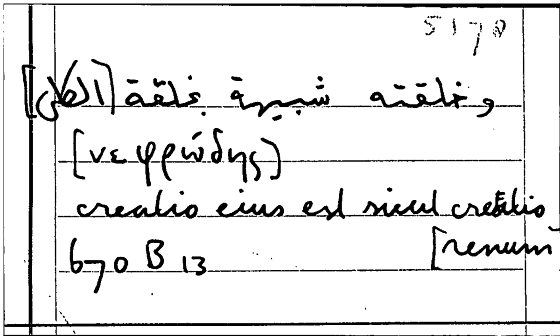 5178
وخلقته شبيهة بخلقة [الكلى]
[νεφρώδης]
creatio eius est sicut creatio
[renum
670 B 13